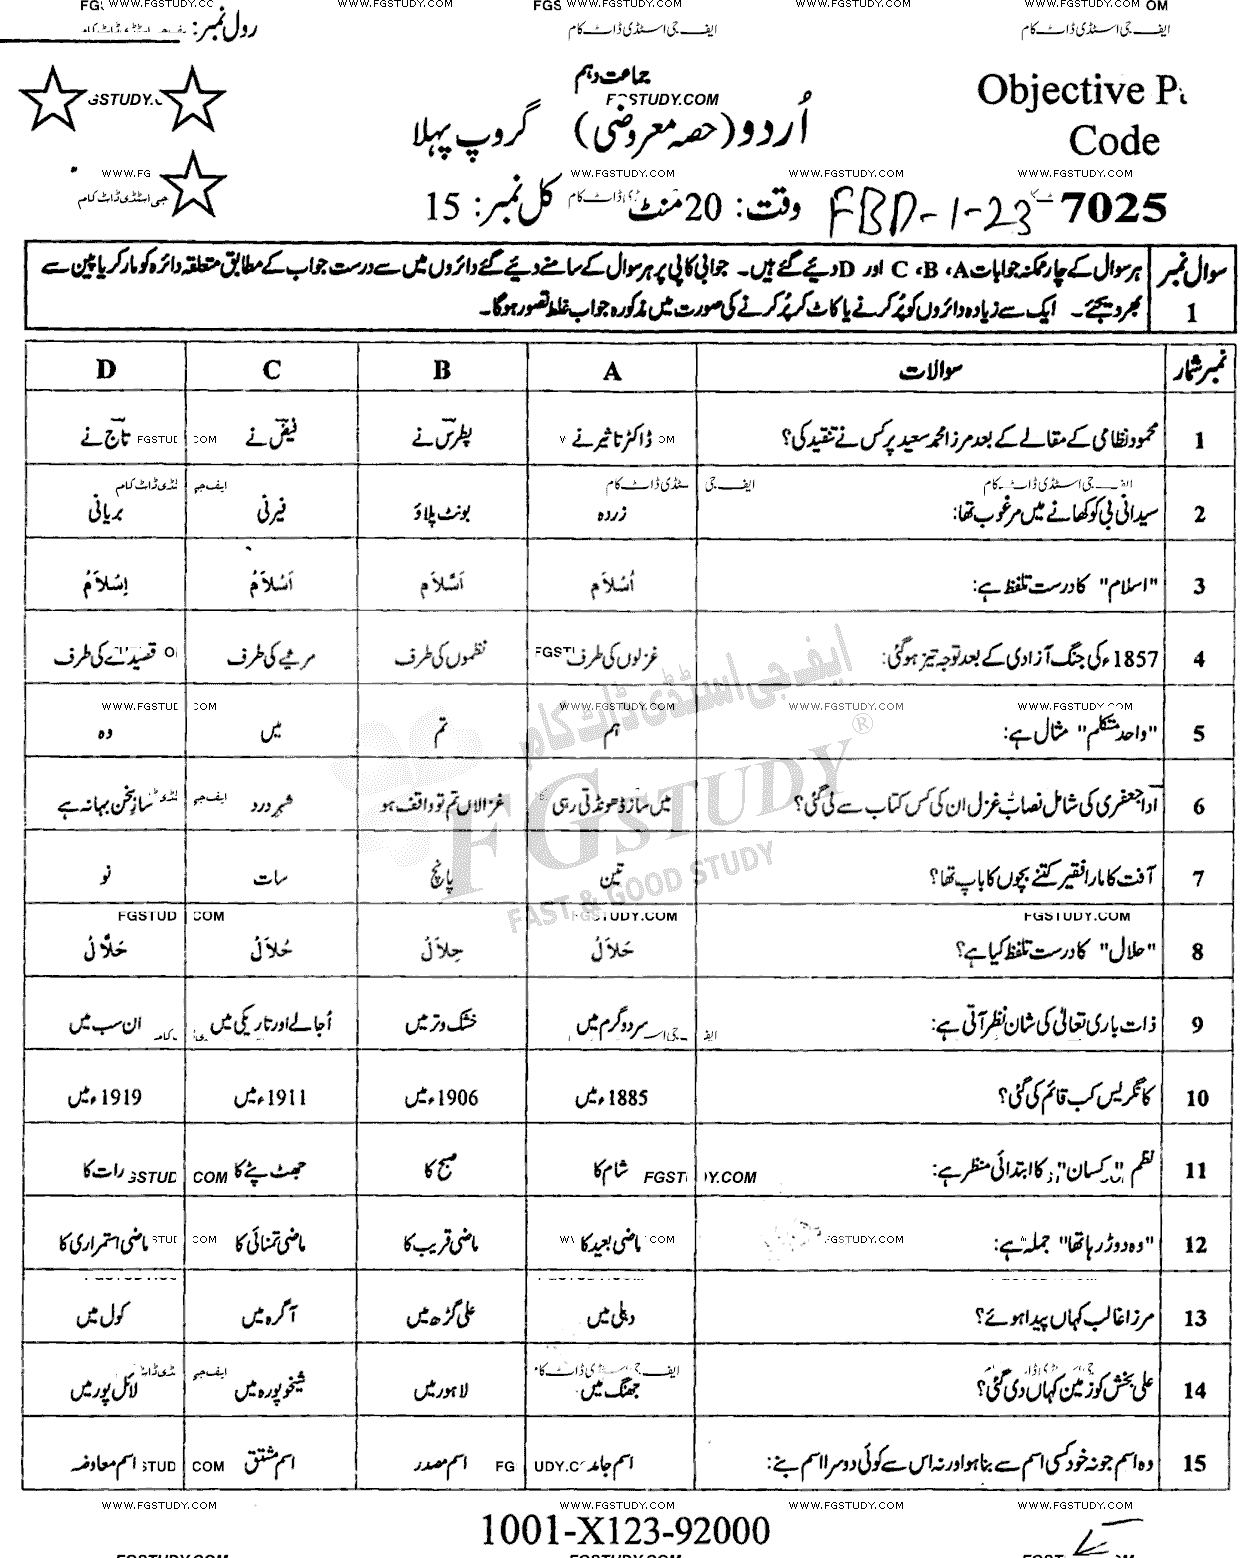 WWW.FGSTUDY.COM
FGS WWW.FGSTUDY.COM
WWW.FGSTUDY.COM
رول نمبر:
ایف جی اسٹڈی ڈاٹ کام
ایف جی اسٹڈی ڈاٹ کام
جماعت دہم
Objective
FGSTUDY.COM
اُردو (حصہ معروضی) گروپ پہلا
Code
WWW.FGSTUDY.COM
وقت: 20 منٹ کل نمبر: 15
FBD-1-23
7025
سوال نمبر 1
ہر سوال کے چار ممکنہ جوابات A، B، C اور D دیئے گئے ہیں۔ جوابی کاپی پر ہر سوال کے سامنے دیئے گئے دائروں میں سے درست جواب کے مطابق متعلقہ دائرہ کو مارکر یا پین سے
بھر دیجئے۔ ایک سے زیادہ دائروں کو پُر کرنے یا کاٹ کر پُر کرنے کی صورت میں مذکورہ جواب غلط تصور ہوگا۔
نمبر شمار سوالات A B C D
1 محمود نظامی کے مقالے کے بعد مرزا محمد سعید پر کس نے تنقید کی؟ ڈاکٹر تاثیر نے پطرس نے فیض نے تاج نے
2 سیدانی بی کو کھانے میں مرغوب تھا: زردہ بونٹ پلاؤ فیرنی بریانی
3 "اسلام" کا درست تلفظ ہے: اُسْلَامْ اَسَّلَامْ اَسْلَامُ اِسْلَامْ
4 1857ء کی جنگ آزادی کے بعد توجہ تیز ہوگئی: غزلوں کی طرف نظموں کی طرف مرثیے کی طرف قصیدے کی طرف
5 "واحد متکلم" مثال ہے: ہم تم میں وہ
6 ادا جعفری کی شامل نصاب غزل ان کی کس کتاب سے لی گئی؟ میں ساز ڈھونڈتی رہی غزالاں تم تو واقف ہو شہرِ درد سازِ سخن بہانہ ہے
7 آفت کا مارا فقیر کتنے بچوں کا باپ تھا؟ تین پانچ سات نو
8 "حلال" کا درست تلفظ کیا ہے؟ حَلَالْ حِلَالْ حُلَالْ حَلَّالْ
9 ذات باری تعالیٰ کی شان نظر آتی ہے: سرد و گرم میں خشک و تر میں اُجالے اور تاریکی میں ان سب میں
10 کانگریس کب قائم کی گئی؟ 1885ء میں 1906ء میں 1911ء میں 1919ء میں
11 نظم "کسان" کا ابتدائی منظر ہے: شام کا صبح کا جھٹ پٹے کا رات کا
12 "وہ دوڑ رہا تھا" جملہ ہے: ماضی بعید کا ماضی قریب کا ماضی تمنائی کا ماضی استمراری کا
13 مرزا غالب کہاں پیدا ہوئے؟ دہلی میں علی گڑھ میں آگرہ میں کول میں
14 علی بخش کو زمین کہاں دی گئی؟ جھنگ میں لاہور میں شیخوپورہ میں لائل پور میں
15 وہ اسم جو نہ خود کسی اسم سے بنا ہو اور نہ اس سے کوئی دوسرا اسم بنے: اسم جامد اسم مصدر اسم مشتق اسم معاوضہ
ایف جی اسٹڈی ڈاٹ کام
FGSTUDY®
FAST & GOOD STUDY
WWW.FGSTUDY.COM WWW.FGSTUDY.COM WWW.FGSTUDY.COM WWW.FGSTUDY.COM
1001-X123-92000